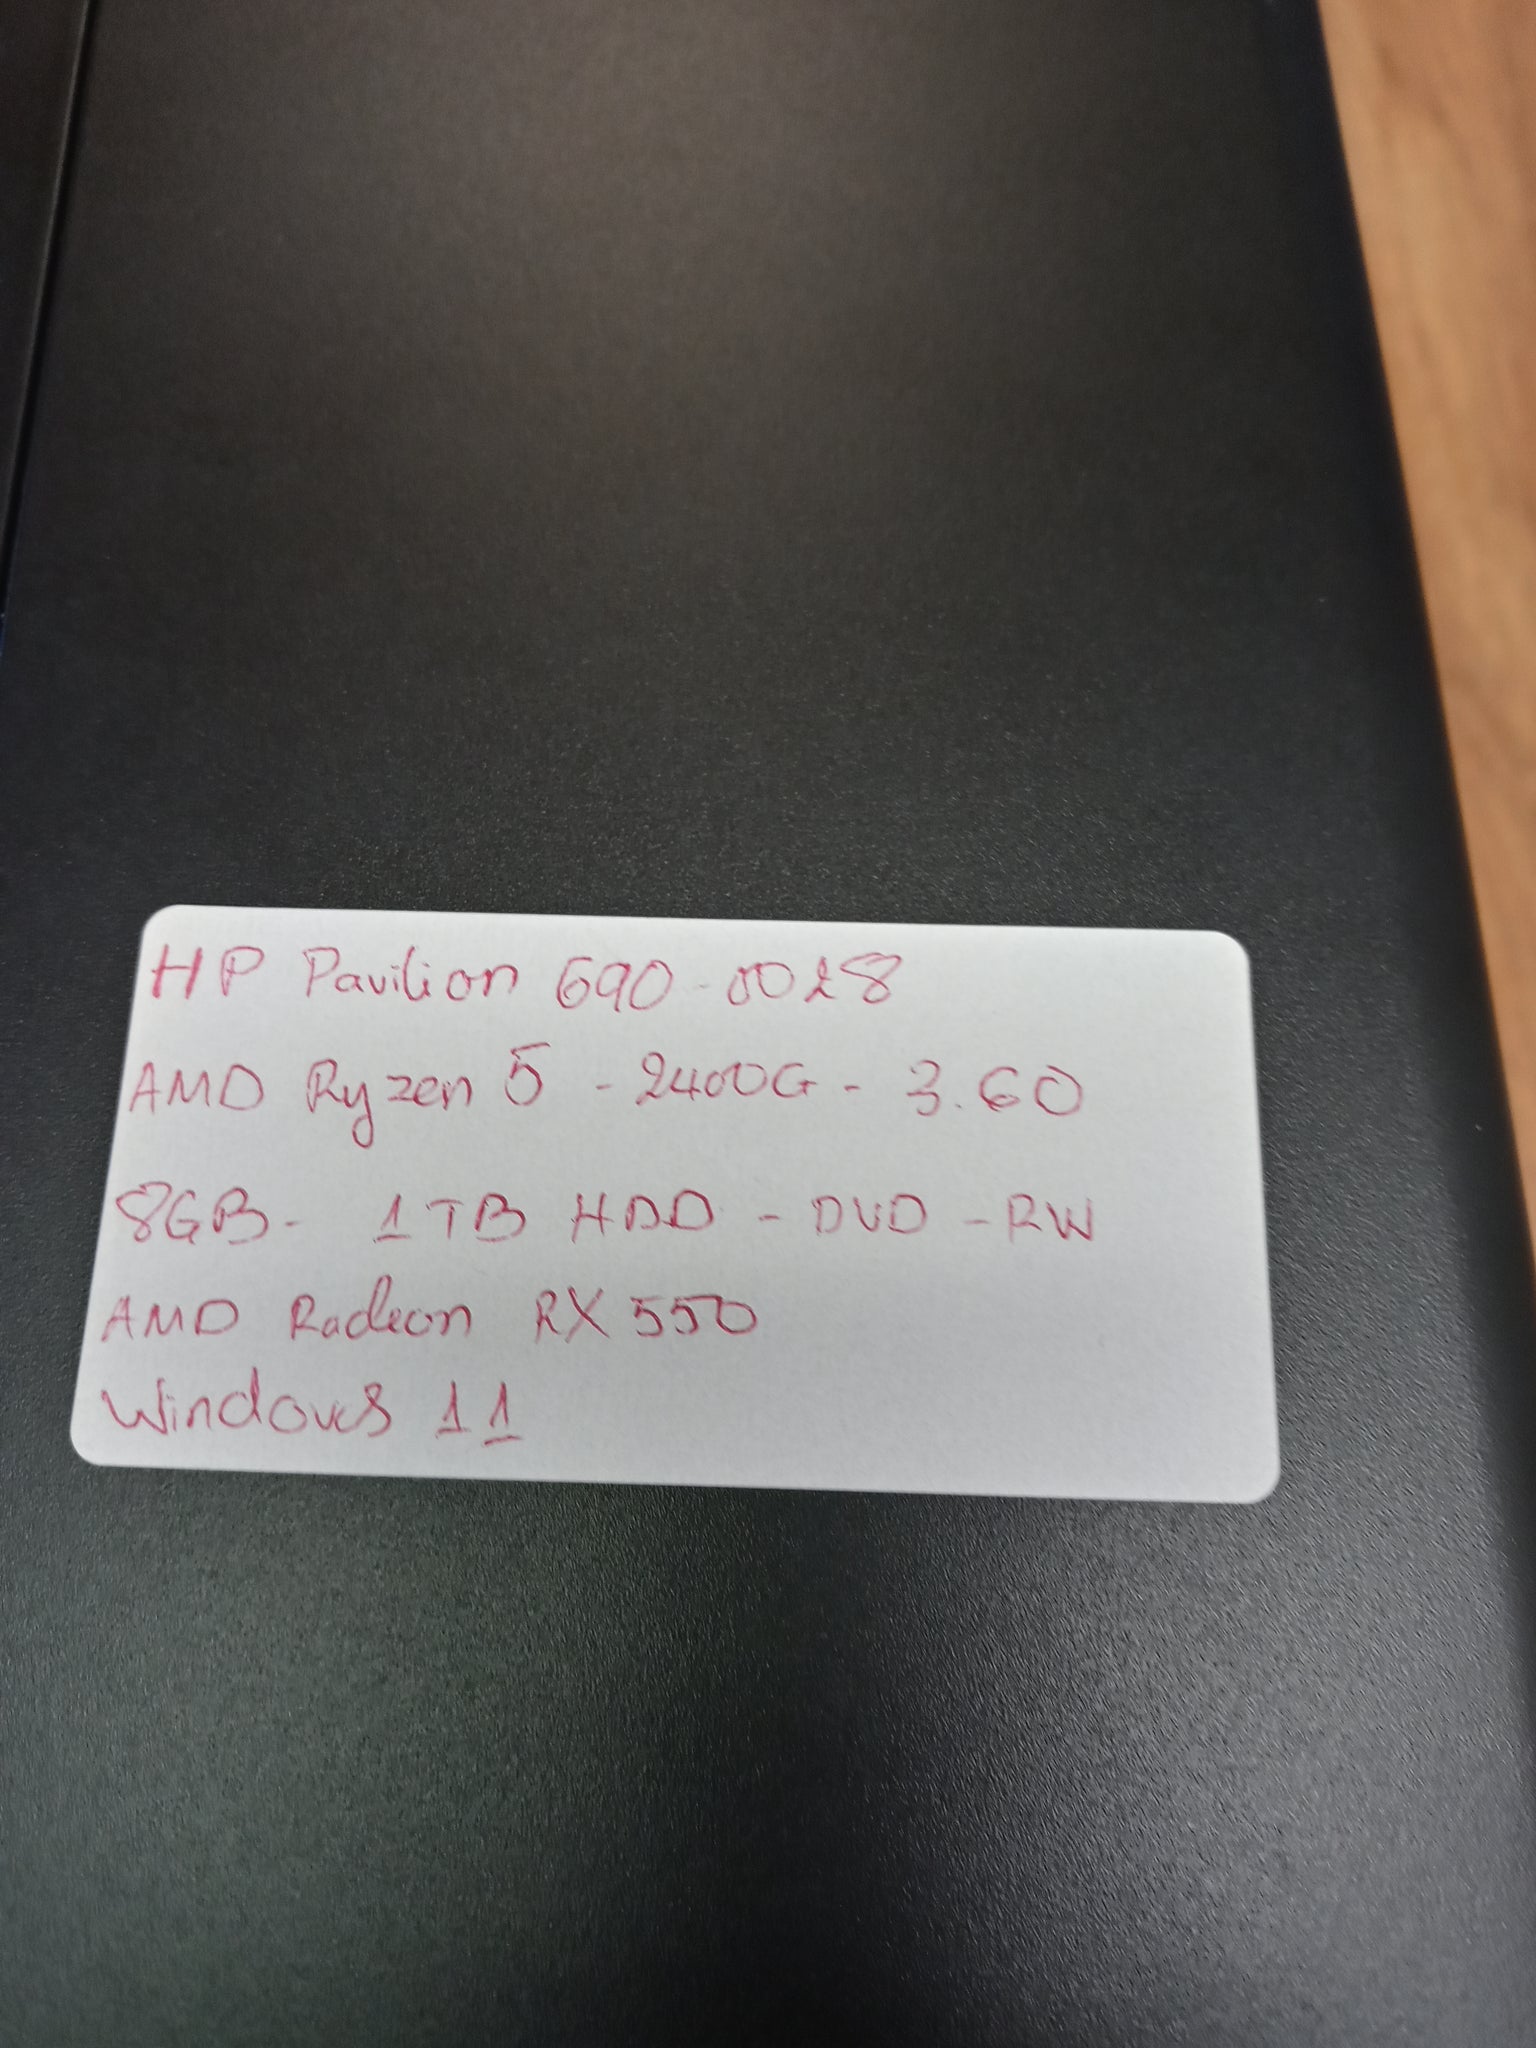 HP Pavilion 690-0028
AMD Ryzen 5 - 2400G - 3.60
8GB - 1TB HDD - DVD - RW
AMD Radeon RX 550
Windows 11